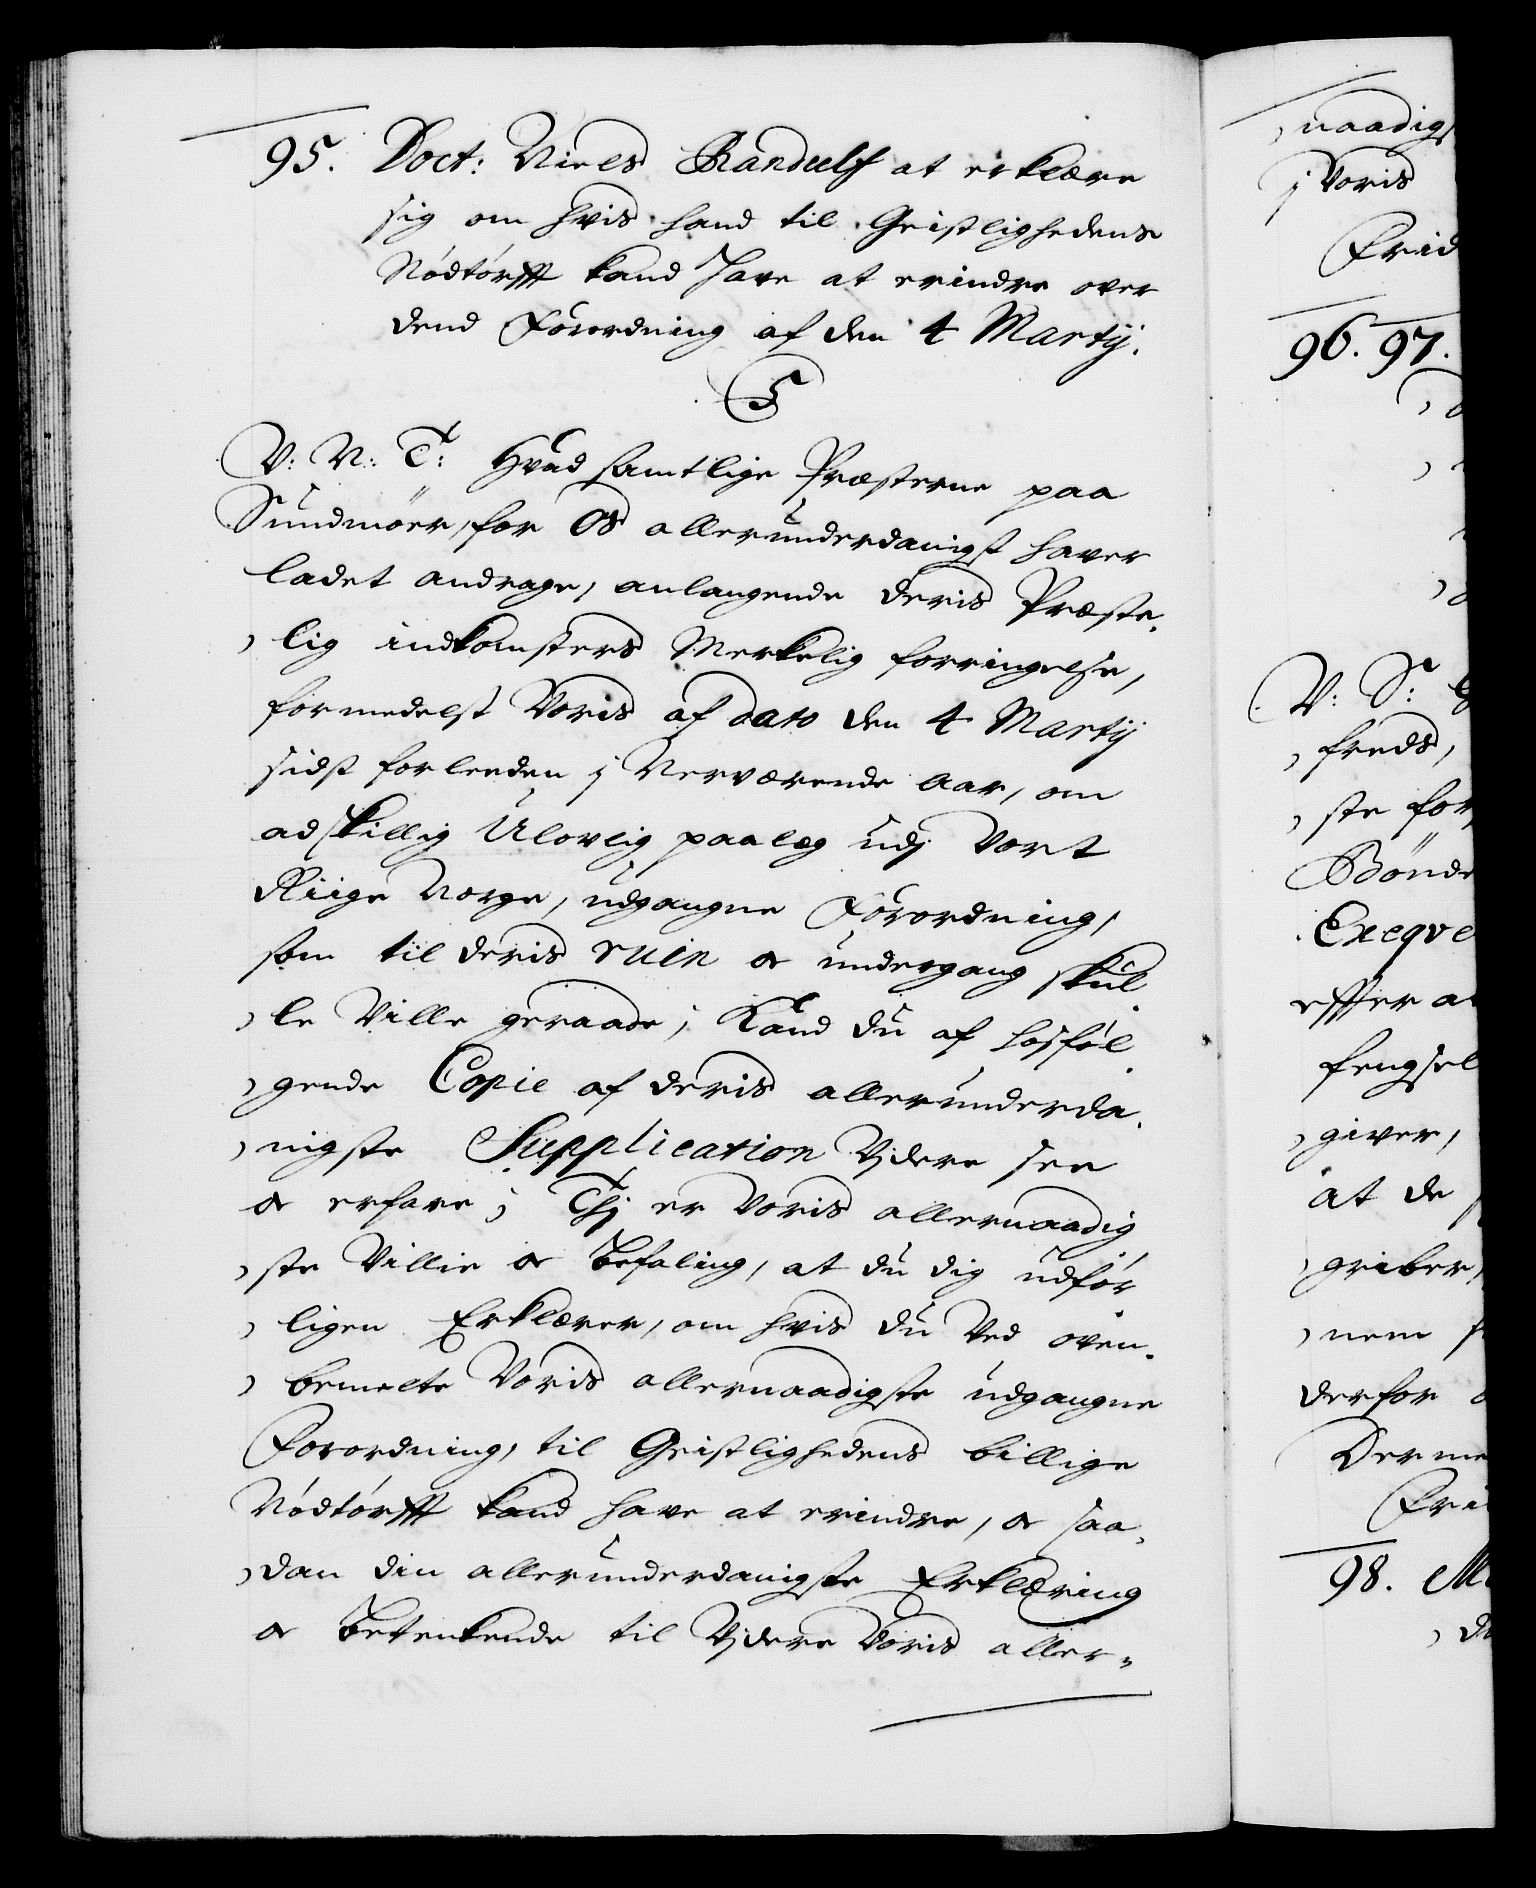 95. Doct: Niels Randulf at erklære
sig om hvis hand til Geistlighedens
Nödtörfft kand have at erindre over
dend Forordning af den 4 Martij.
V: N: T: Hvad samtlige Præsterne paa
Sundmöer, for Os allerunderdanigst haver
ladet andrage, anlangende deris Præste-
lig indkomsters Merkelig forringelse,
formedelst Voris af dato den 4 Martij
sidst forleeden j Nerværende Aar, om
adskillig Ulovlig paalæg udj Vort
Riige Norge, udgangne Forordning,
som til deris ruin oc undergang skul
le Ville geraade; Kand du af hosföl
gende Copie af deris allerunderda-
nigste Supplication Vjdere see
oc erfare; Thj er Voris allernaadig
ste Villie oc Befaling, at du dig udför
ligen Erklærer, om hvis du Ved oven-
bemelte Voris allernaadigste udgangne
Forordning, til Geistlighedens billige
Nödtörfft kand have at erindre, oc saa-
dan din allerunderdanigste Erklæring
oc Betenkende til Vjdere Voris aller-
naadigs
j Voris
Frid
96. 97.
V: S:
freds,
ste for
Bönde
Exeqve
effter a
fengsel
giver,
at de
griber,
nem
derfor
Derme
Fri
98. M